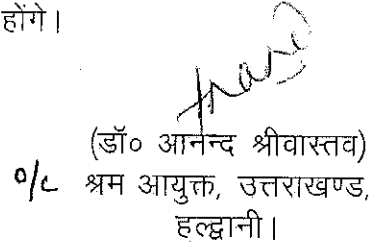 होंगे।
(डॉ० आनन्द श्रीवास्तव)
o/c श्रम आयुक्त, उत्तराखण्ड,
हल्द्वानी।